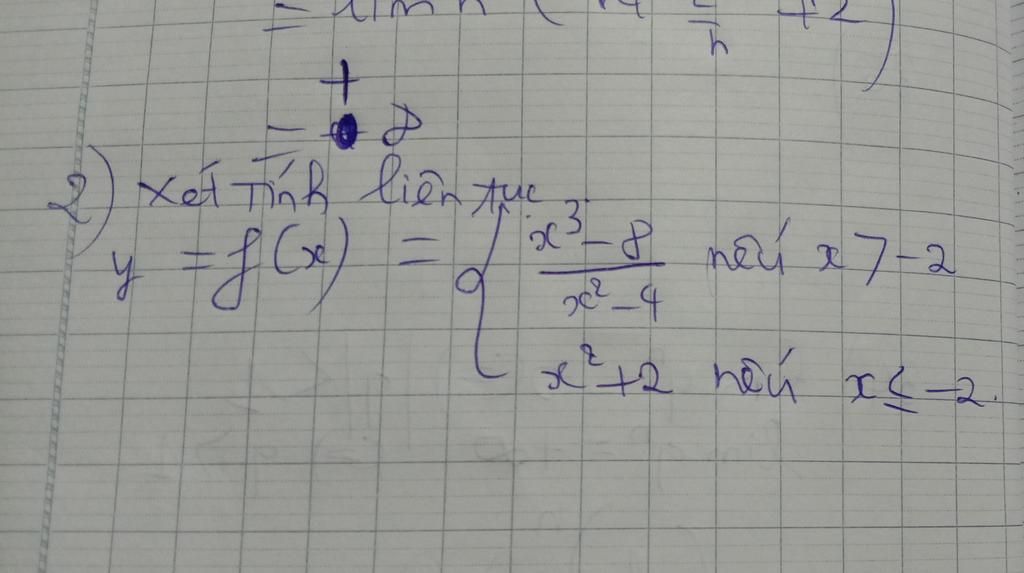 = lim n ( 2/n +2 )
= + ∞
2) xét tính liên tục
y = f(x) = { x³-8 / x²-4 nếu x > -2
x²+2 nếu x ≤ -2.